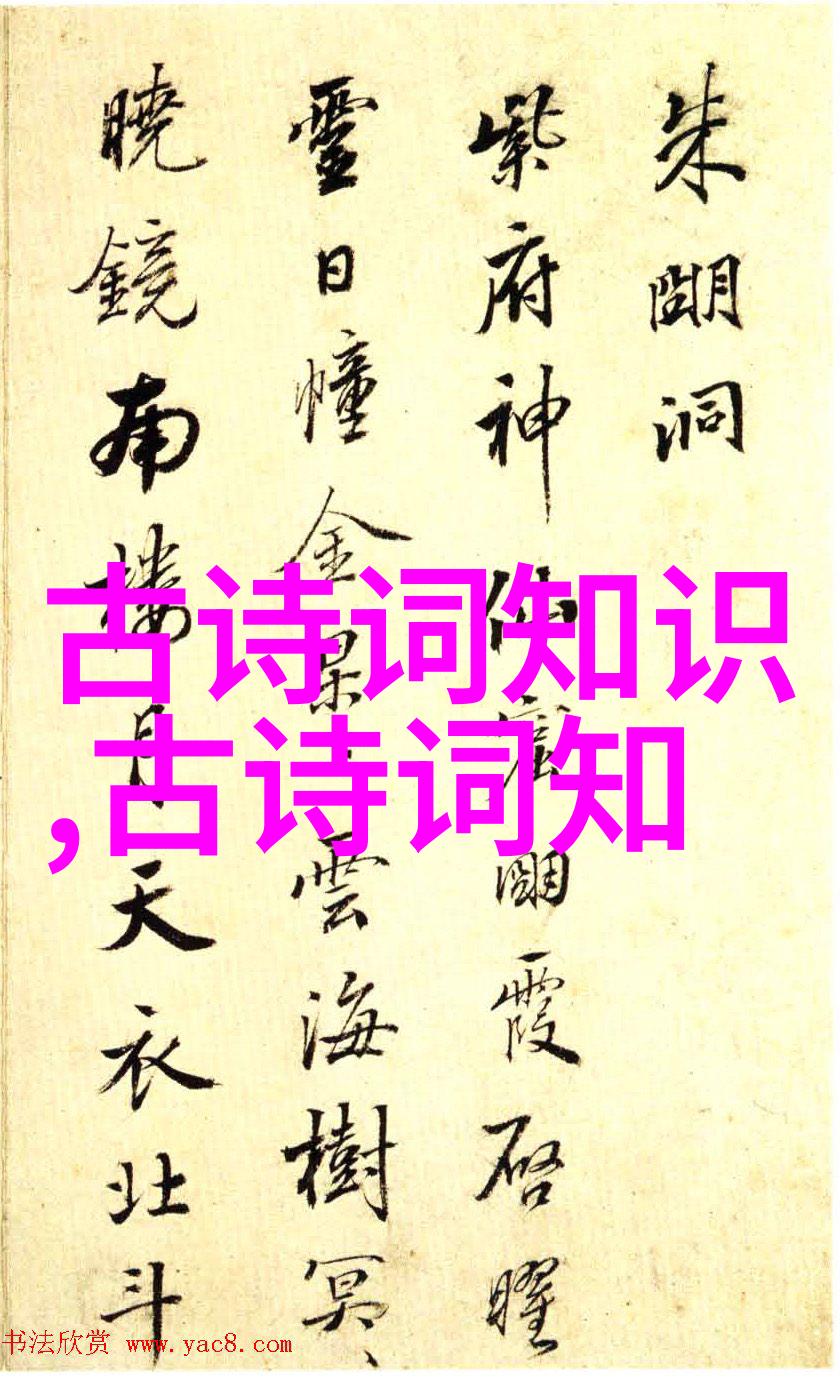 朱朙洞
紫府神仙窟朙霞啓曜
霊日幢金雲海樹冥、
曉鏡南樓月天衣北斗
古诗词知识
,古诗词知
书法欣赏 www.yac8.com